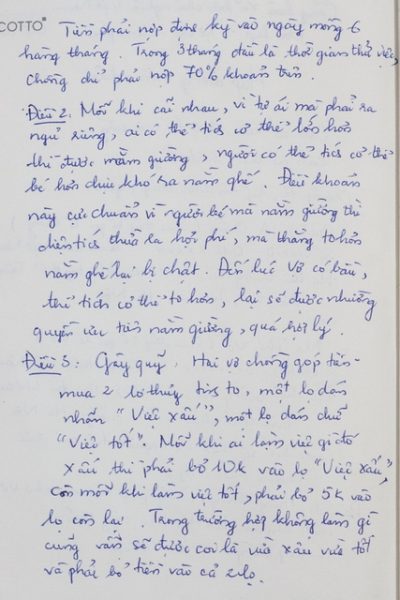 COTTO
Tiền phải nộp định kỳ vào ngày mồng 6
hàng tháng. Trong 3 tháng đầu là thời gian thử việc,
chồng chỉ phải nộp 70% khoản trên.
Điều 2. Mỗi khi cãi nhau, vì tự ái mà phải ra
ngủ riêng, ai có thể tích cơ thể lớn hơn
thì được nằm giường, người có thể tích cơ thể
bé hơn chịu khó ra nằm ghế. Điều khoản
này cực chuẩn vì người bé mà nằm giường thì
diện tích thừa ra hơi phí, mà thằng to hơn
nằm ghế lại bị chật. Đến lúc vợ có bầu,
thể tích cơ thể to hơn, lại sẽ được nhường
quyền ưu tiên nằm giường, quá hợp lý.
Điều 3: Gây quỹ. Hai vợ chồng góp tiền
mua 2 lọ thủy tinh to, một lọ dán
nhãn "Việc xấu", một lọ dán chữ
"Việc tốt". Mỗi khi ai làm việc gì đó
xấu thì phải bỏ 10k vào lọ "Việc xấu",
còn mỗi khi làm việc tốt, phải bỏ 5k vào
lọ còn lại. Trong trường hợp không làm gì
cũng vẫn sẽ được coi là vừa xấu vừa tốt
và phải bỏ tiền vào cả 2 lọ.